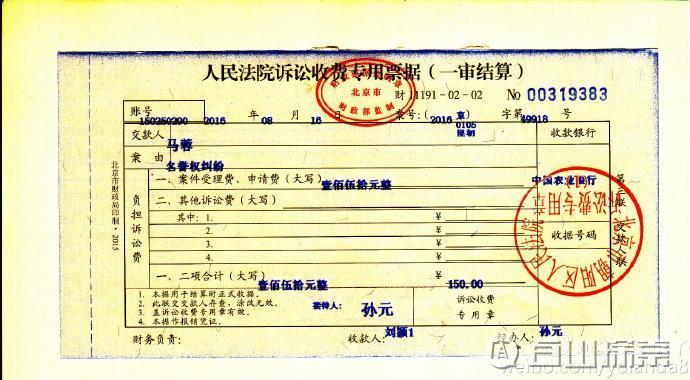 人民法院诉讼收费专用票据（一审结算）
北京市
财政部监制
财 11191-02-02 No 00319383
账号 150250200 2016 年 08 月 16 日 案号：（2016 京0105民初 字第 49918 号
交款人 马蓉 收款银行
案由 名誉权纠纷
负担诉讼费
一、案件受理费、申请费（大写） 壹佰伍拾元整 中国农业银行
二、其他诉讼费（大写） ¥
其中：1. ¥
2. ¥ 收据号码
3. ¥
4. ¥
一、二项合计（大写） 壹佰伍拾元整 ¥ 150.00
1. 本据用于结算时正式收据。
2. 此联交交款人存查，涂改无效。
3. 盖诉讼收费专用章有效。
4. 本据作报销凭证。
接待人： 孙元
诉讼收费
专用章
财务负责： 收款人： 刘颖1 经办人： 孙元
北京市财政局印制·2015
北京市朝阳区人民法院
诉讼费专用章